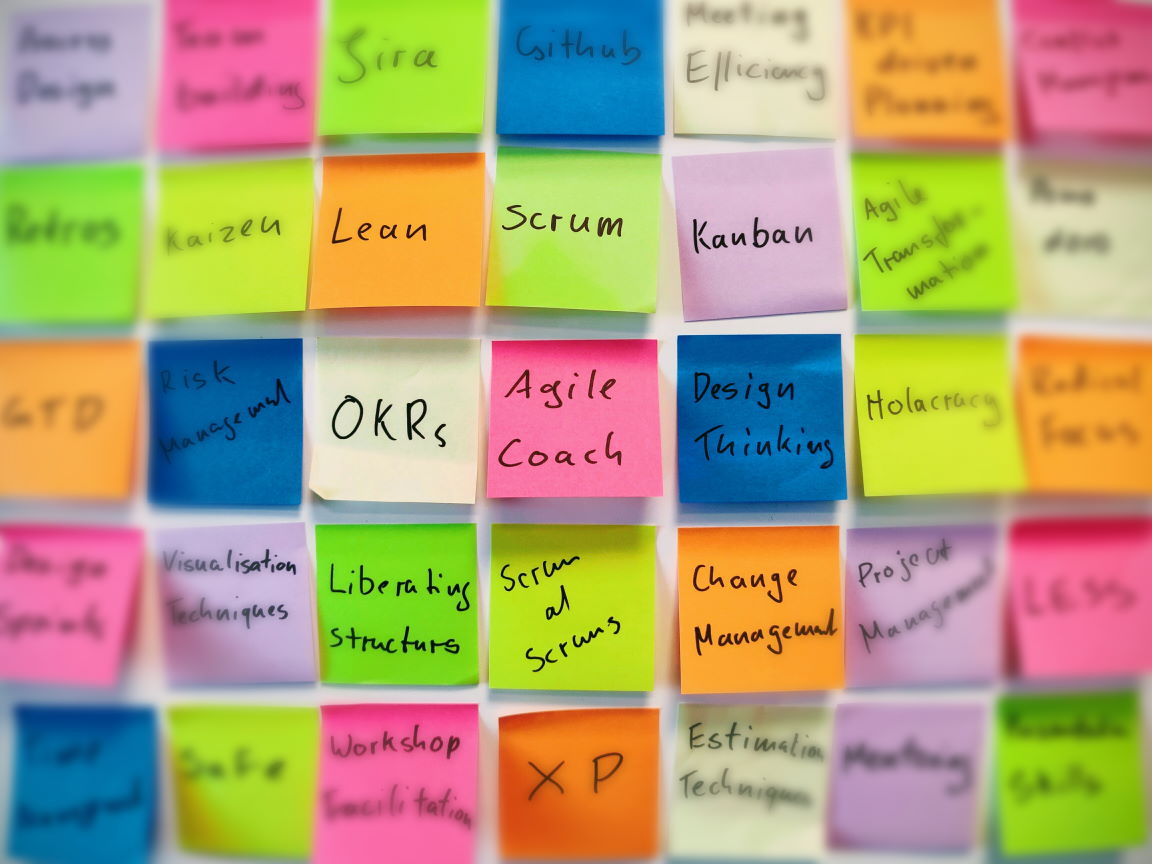 Design
Team
building
Jira
Github
Meeting
Efficiency
KPI
driven
Planning
Retros
Kaizen
Lean
Scrum
Kanban
Agile
Transfor-
mation
GTD
Risk
Management
OKRs
Agile
Coach
Design
Thinking
Holacracy
Radical
Focus
Design
Sprints
Visualisation
Techniques
Liberating
Structurs
Scrum
of
Scrums
Change
Management
Project
Management
LESS
SaFe
Workshop
Facilitation
XP
Estimation
Techniques
Mentoring
Skills